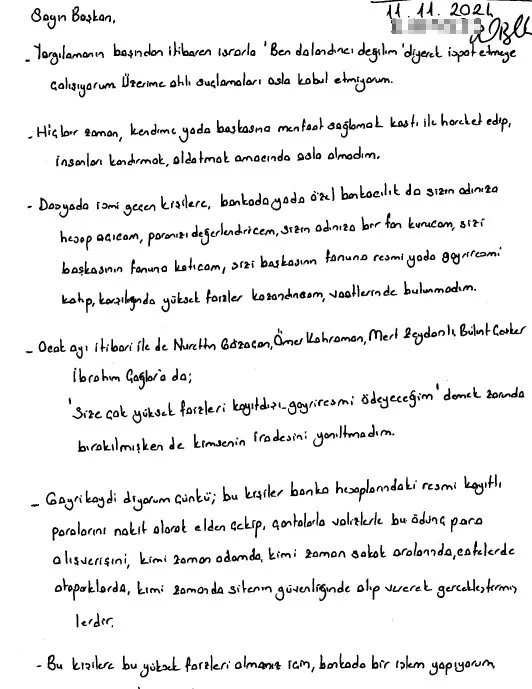 Sayın Başkan,
11.11.2024
- Yargılamanın başından itibaren ısrarla 'Ben dolandırıcı değilim' diyerek ispat etmeye
çalışıyorum Üzerime atılı suçlamaları asla kabul etmiyorum.
- Hiçbir zaman, kendime yada başkasına menfaat sağlamak kastı ile hareket edip,
insanları kandırmak, aldatmak amacında asla olmadım.
- Dosyada ismi geçen kişilere, bankada yada özel bankacılık da sizin adınıza
hesap açıcam, paranızı değerlendiricem, sizin adınıza bir fon kurucam, sizi
başkasının fonuna katıcam, sizi başkasının fonuna resmi yada gayriresmi
katıp, karşılığında yüksek faizler kazandırıcam, vaatlerinde bulunmadım.
- Ocak ayı itibari ile de Nurettin Bozacan, Ömer Kahraman, Mert Zeydanlı, Bülent
İbrahim Çağlar'a da;
'Size çok yüksek faizleri kayıtdışı-gayriresmi ödeyeceğim' demek zorunda
bırakılmışken de kimsenin iradesini yanıltmadım.
- Gayrikaydi diyorum çünkü; bu kişiler banka hesaplarındaki resmi kayıtlı
paralarını nakit olarak elden çekip, çantalarla valizlerle bu ödünç para
alışverişini, kimi zaman odamda, kimi zaman sokak aralarında, cafelerde
otoparklarda, kimi zamanda sitenin güvenliğinde alıp vererek gerçekleştirmiş
lerdir.
- Bu kişilere bu yüksek faizleri almanız için, bankada bir işlem yapıyorum